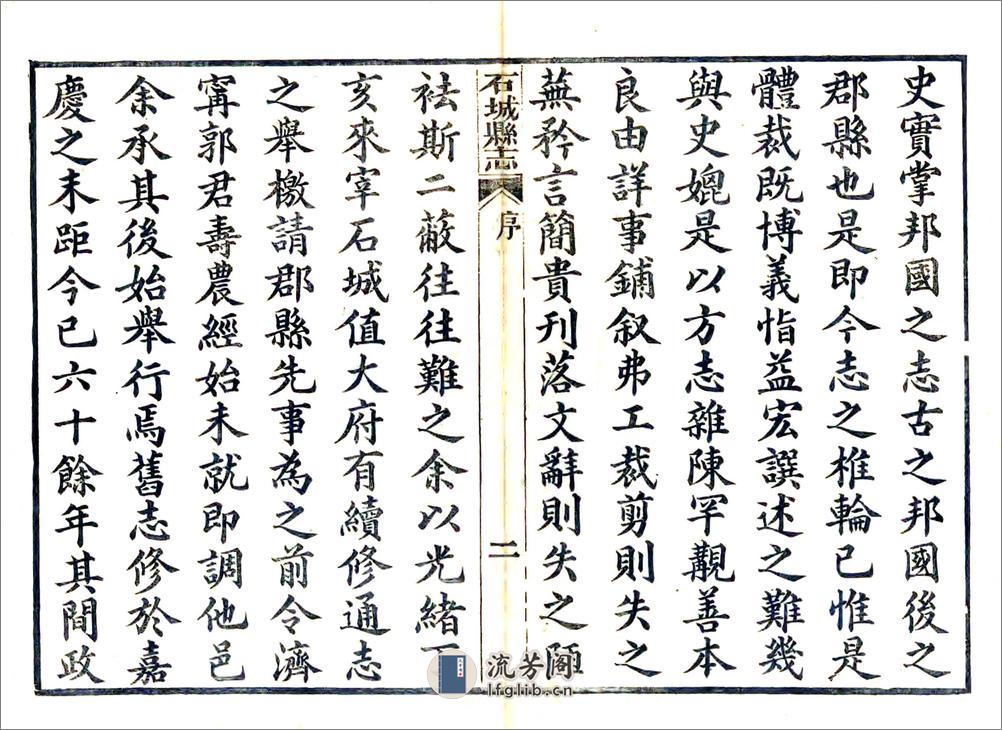 史實掌邦國之志古之邦國後之
郡縣也是即今志之椎輪已惟是
體裁既博義恉益宏譔述之難幾
與史媲是以方志雜陳罕覯善本
良由詳事鋪叙弗工裁剪則失之
蕪矜言簡貴刊落文辭則失之陋
石城縣志 序 二
袪斯二蔽往往難之余以光緒丁
亥來宰石城值大府有續修通志
之舉檄請郡縣先事為之前令濟
甯郭君壽農經始未就即調他邑
余承其後始舉行焉舊志修於嘉
慶之末距今已六十餘年其間政
流芳阁
lfglib.cn